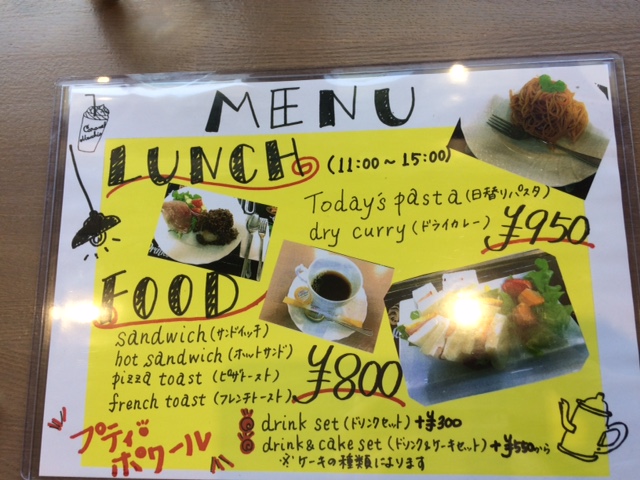 MENU
LUNCH (11:00~15:00)
Today's pasta (日替りパスタ)
dry curry (ドライカレー) ¥950
FOOD
sandwich (サンドイッチ)
hot sandwich (ホットサンド)
pizza toast (ピザトースト)
french toast (フレンチトースト) ¥800
プティポワール
drink set (ドリンクセット) +¥300
drink&cake set (ドリンク&ケーキセット) +¥550から
※ケーキの種類によります